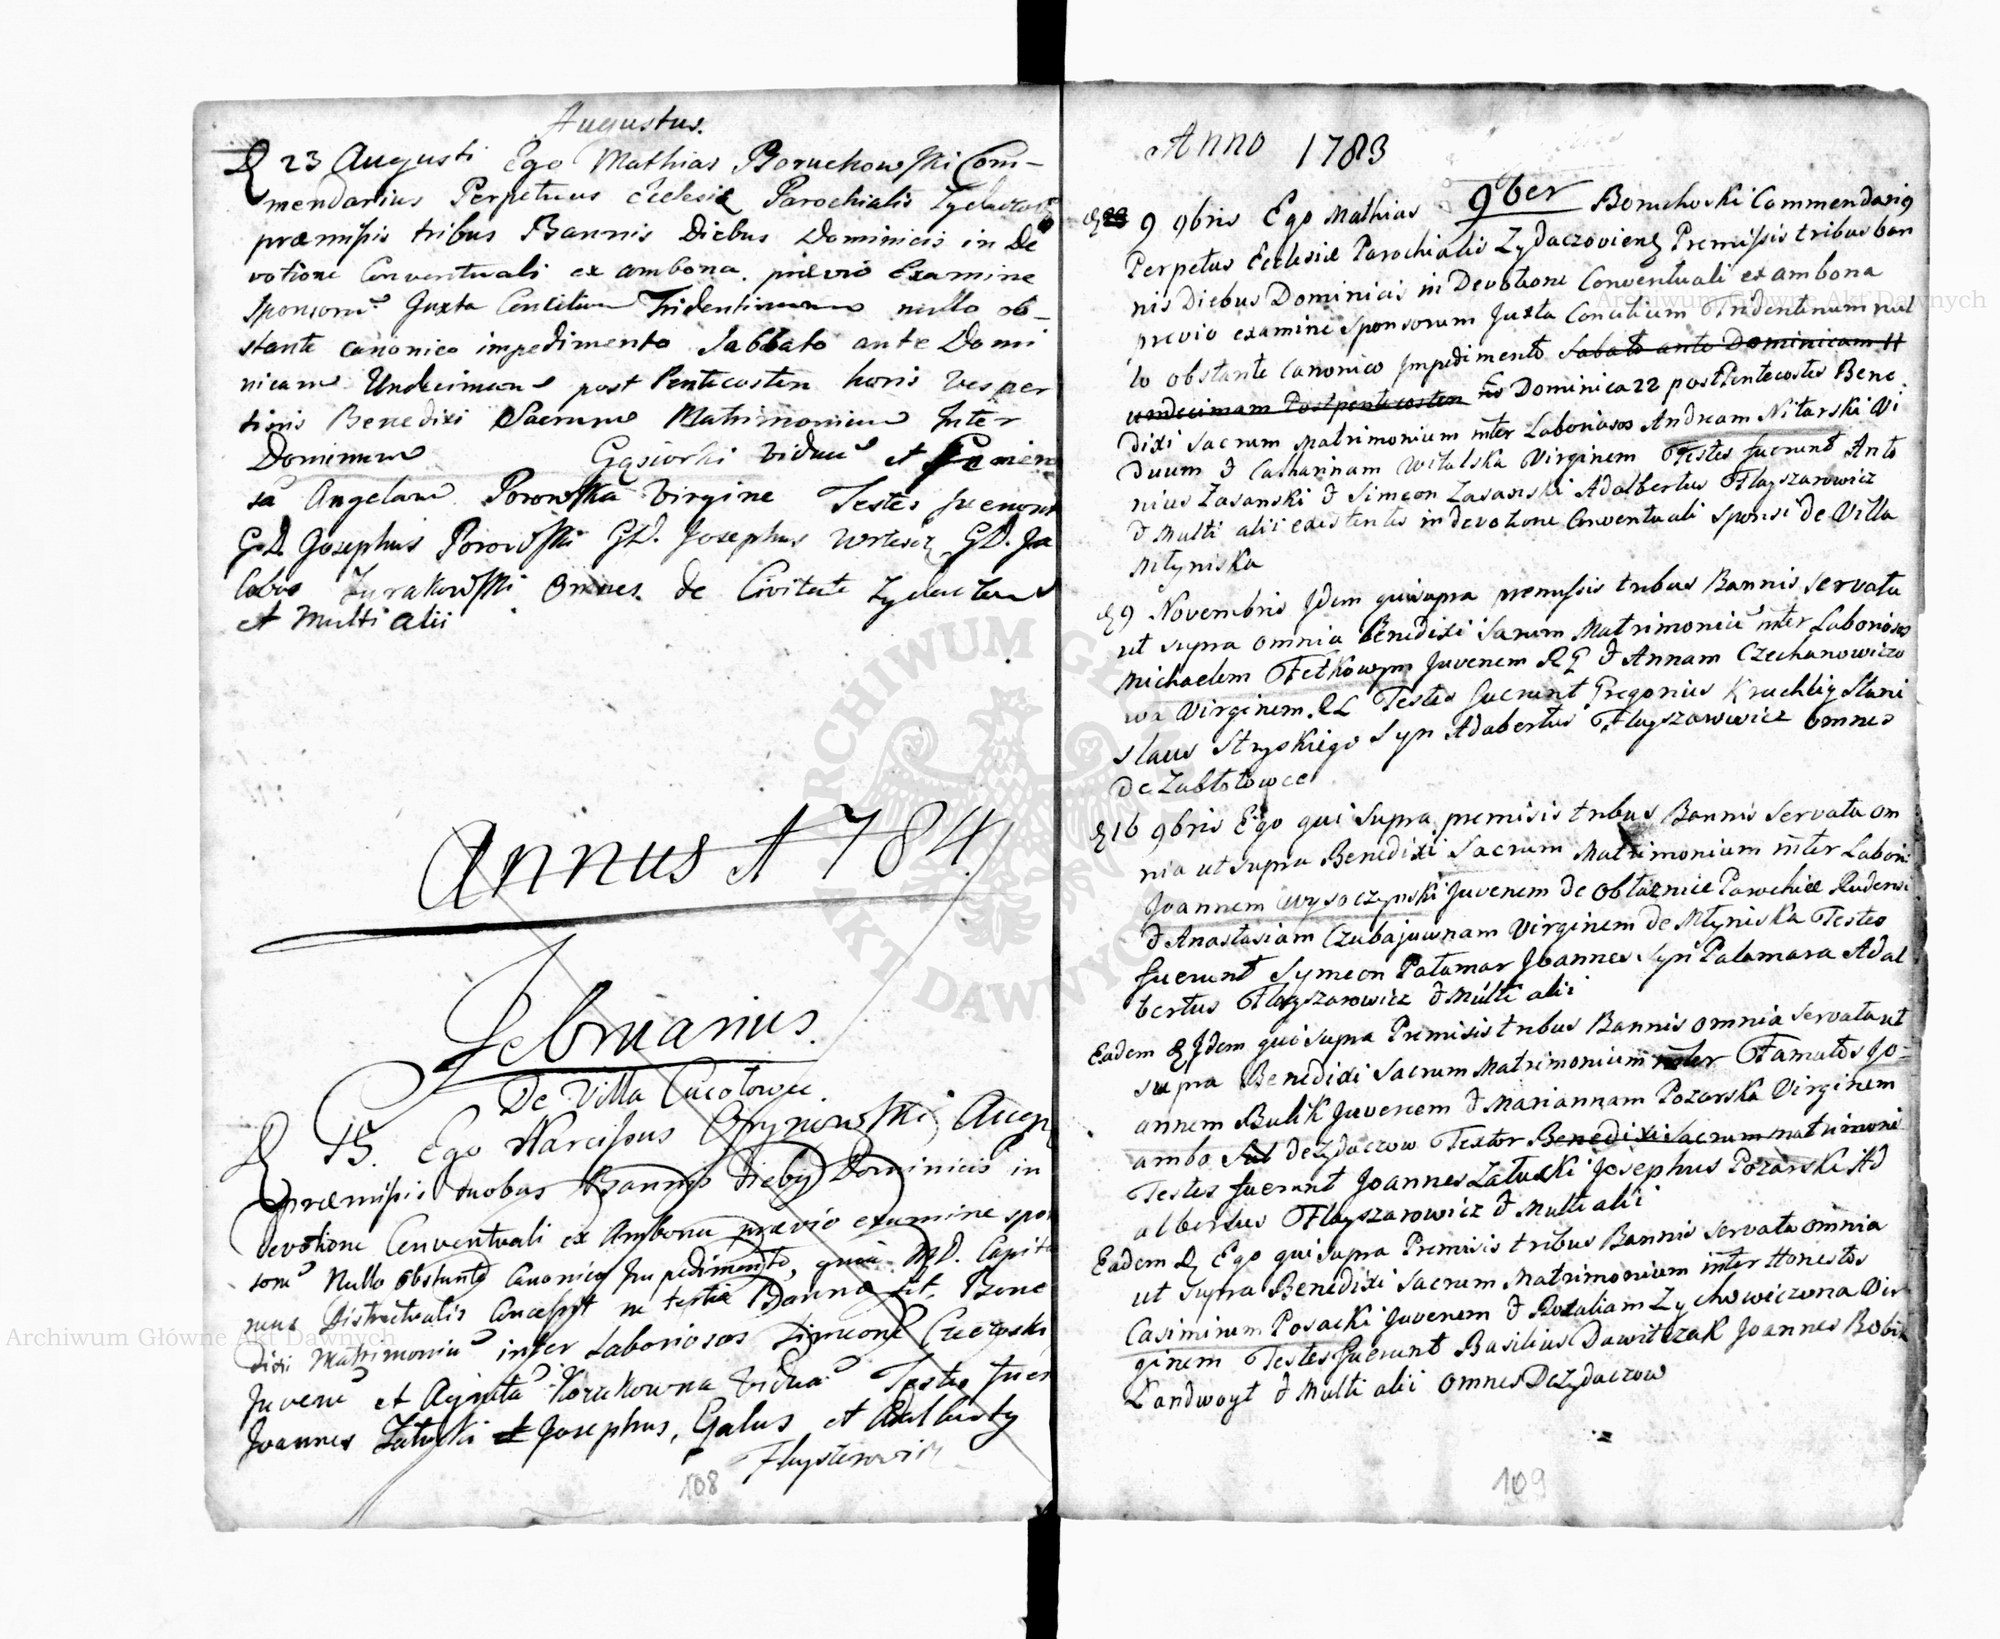 Augustus.
D 23 Augusti Ego Mathias Boruchowski Com-
mendarius Perpetuus Ecclesiæ Parochialis
præmissis tribus Bannis Diebus Dominicis in De
votione Conventuali ex ambona prævio Examine
sponsorū Juxta Concilium Tridentinum nullo ob-
stante canonico impedimento Sabbato ante Domi
nicam Undecimam post Pentecosten horis Vesper
tinis Benedixi Sacrum Matrimonium Inter
Dominum Gąsiorki viduū et
Angelam Porowska Virgine Testes fueront
G.D. Josephus Porowski GD. Josephus GD. Ja
cobus Zurakowski Omnes de Civitate
et Multi alii
Annus 1784
Februarius.
De Villa
D 15. Ego Narcissus
præmissis duobus Bannis Dieby Dominicis in
devotione Conventuali ex Ambona prævio examine spon
sorū Nullo obstante Canonico Impedimento, quia
Districtualis in tertia Banna Bene
dixi Matrimoniū inter Laboriosos Simeone
Juvenē et Agnetā viduā Testes fuer
Joannes Załuski et Josephus, Galus, et Adalberty
108
Anno 1783
9ber
D 9 9bris Ego Mathias Boruchoski Commendari9
Perpetus Ecclesiæ Parochialis Premissis tribus ban
nis Diebus Dominicis in Devotione Conventuali ex ambona
previo examine sponsorum Juxta Concilium Tridentinum nul
lo obstante Canonico Impedimento Sabato ante Dominicam 11
undecimam Post pentecosten Dominica 22 post Pentecostes Bene
dixi Sacrum Matrimonium inter Laboriosos Andream Nitarski Vi
duum & Catharinam Witalska Virginem Testes fuerunt Anto
nius Zasanski & Simeon Zasanski Adalbertus Flayszarowicz
& Multi alii existentes in devotione Conventuali sponsi de Villa
Młyniska
D 9 Novembris Idem qui supra premissis tribus Bannis servata
ut supra omnia Benedixi Sacrum Matrimoniū inter Laboriosos
Michaelem Fetkowym Juvenem & Annam Czechanowiczo
wa Virginem Testes fuerunt Gregorius Stani
slaus Stryskiego Syn Adabertus Flayszarowicz omnes
de Zabłotowce
D 16 9bris Ego qui Supra premisis tribus Bannis Servata om
nia ut supra Benedixi Sacrum Matrimonium inter Labori:
Joannem Wysoczynski Juvenem de Obłaznice Parochiæ Rudens:
& Anastasiam Czubajuwnam Virginem de Młyniska Testes
fuerunt Symeon Pałamar Joannes Syn Palamara Adal
bertus Flayszarowicz & Multi alii
Eadem D Idem qui supra Premisis tribus Bannis omnia servata ut
supra Benedixi Sacrum Matrimonium inter Famatos Jo-
annem Bulik Juvenem & Mariannam Pozarska Virginem
ambo de Zydaczow Textor Benedixi Sacrum matrimoni
Testes fuerunt Joannes Załuski Josephus Pozarski Ad
albertus Flayszarowicz & Multi alii
Eadem D Ego qui supra Premisis tribus Bannis servata omnia
ut Supra Benedixi Sacrum Matrimonium inter Honestos
Casimirum Posacki Juvenem & Rozaliam Zychowiczowna Vir
ginem Testes fuerunt Basilius Dawitczak Joannes Bobik
Landwoyt & Multi alii omnes De Zydaczow
109
Archiwum Główne Akt Dawnych
Archiwum Główne Akt Dawnych
ARCHIWUM GŁÓWNE AKT DAWNYCH